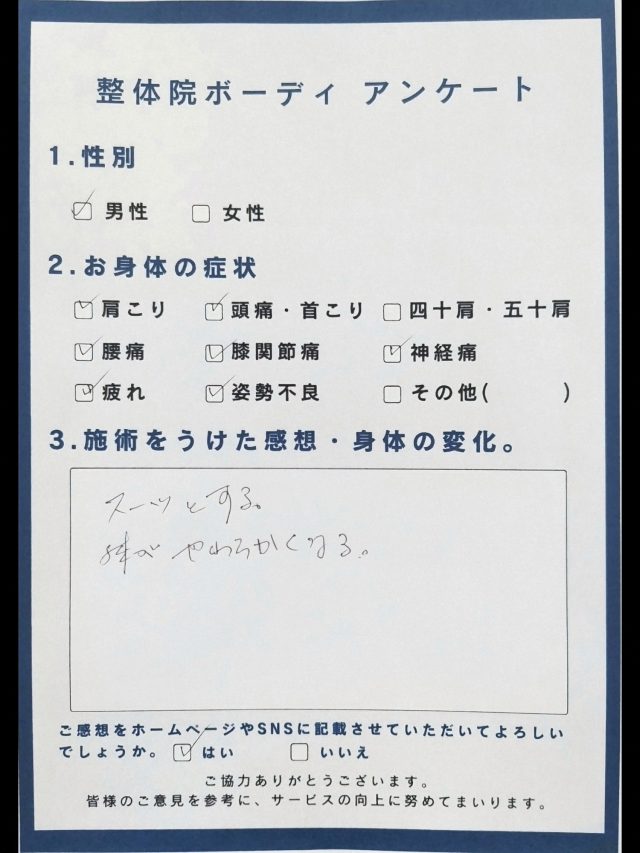 整体院ボーディ アンケート
1.性別
男性 女性
2.お身体の症状
肩こり 頭痛・首こり 四十肩・五十肩
腰痛 膝関節痛 神経痛
疲れ 姿勢不良 その他( )
3.施術をうけた感想・身体の変化。
スーッとする。
体が やわらかくなる。
ご感想をホームページやSNSに記載させていただいてよろしい
でしょうか。 はい いいえ
ご協力ありがとうございます。
皆様のご意見を参考に、サービスの向上に努めてまいります。